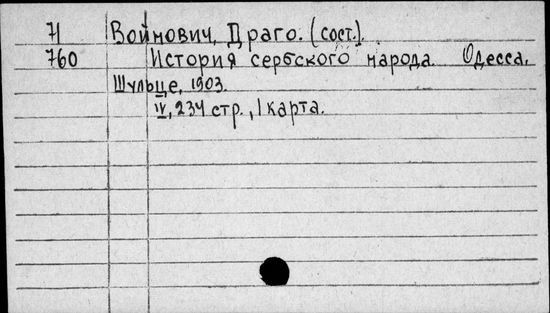 71 Војновић, Драго. (сост.).
760 История сербского народа. Одесса.
Шульце, 1903.
IV, 234 стр., 1 карта.